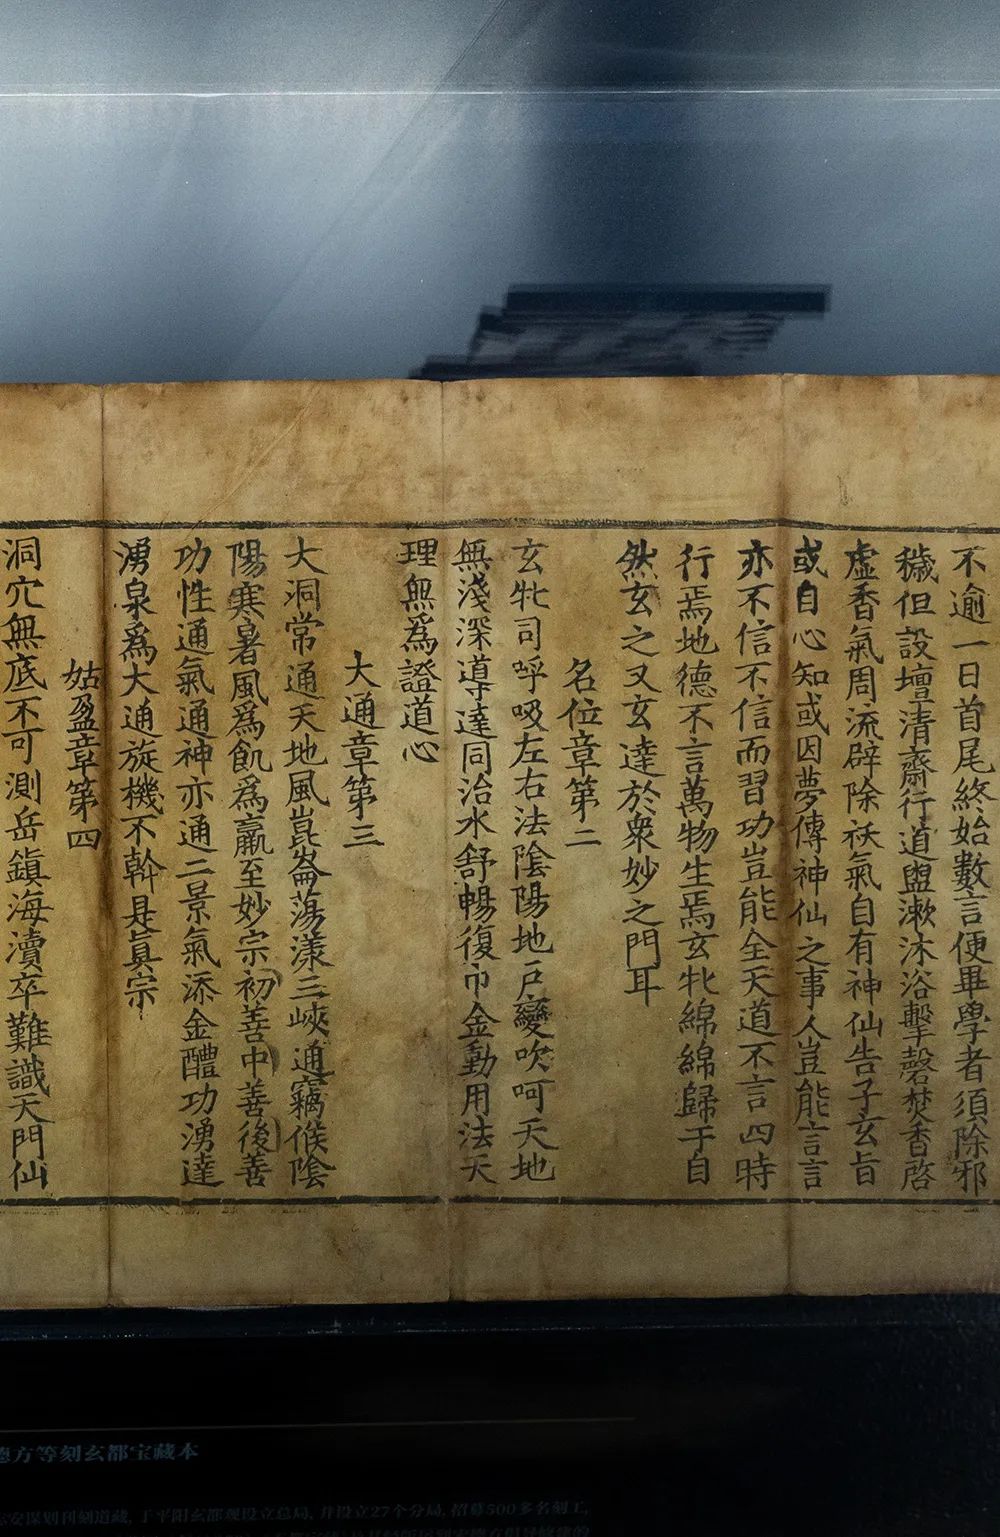 不逾一日首尾終始數言便畢學者須除邪
穢但設壇清齋行道盥漱沐浴擊磬焚香啓
虛香氣周流辟除祅氣自有神仙告子玄旨
或自心知或因夢傳神仙之事人豈能言言
亦不信不信而習功豈能全天道不言四時
行焉地德不言萬物生焉玄牝綿綿歸于自
然玄之又玄達於衆妙之門耳
名位章第二
玄牝司呼吸左右法陰陽地戶變吹呵天地
無淺深導達同治水舒暢復巾金動用法天
理無爲證道心
大通章第三
大洞常通天地風崑崙蕩漾三峽通竊候陰
陽寒暑風爲飢爲羸至妙宗初善中善後善
功性通氣通神亦通二景氣添金醴功湧達
湧泉爲大通旋機不幹是真宗
姑盈章第四
洞穴無底不可測岳鎮海瀆卒難識天門仙
德方等刻玄都宝藏本
志安谋划刊刻道藏, 于平阳玄都观设立总局, 并设立27个分局, 招募500多名刻工,